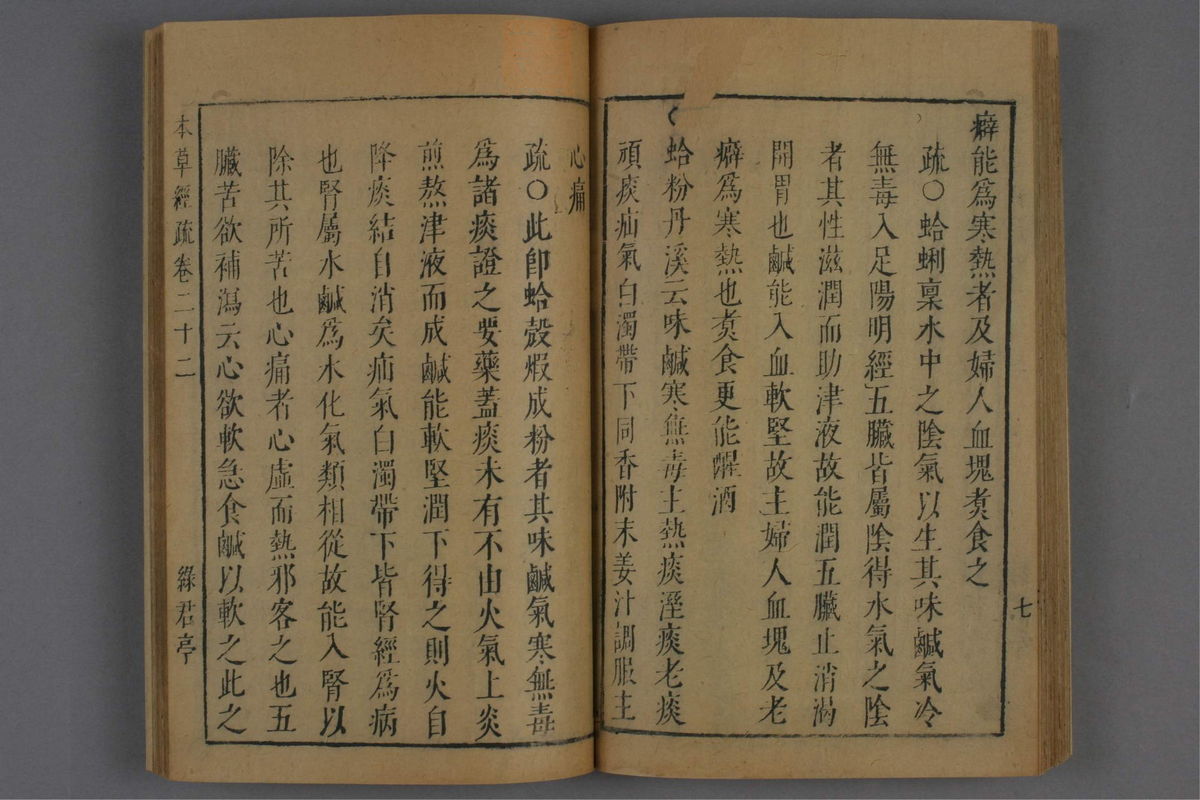 七
癖能爲寒熱者及婦人血塊煮食之
疏○蛤蜊稟水中之陰氣以生其味鹹氣冷
無毒入足陽明經五臟皆屬陰得水氣之陰
者其性滋潤而助津液故能潤五臟止消渴
開胃也鹹能入血軟堅故主婦人血塊及老
癖爲寒熱也煮食更能醒酒
蛤粉丹溪云味鹹寒無毒主熱痰溼痰老痰
頑痰疝氣白濁帶下同香附末姜汁調服主
心痛
疏○此卽蛤殼煆成粉者其味鹹氣寒無毒
爲諸痰證之要藥蓋痰未有不由火氣上炎
煎熬津液而成鹹能軟堅潤下得之則火自
降痰結自消矣疝氣白濁帶下皆腎經爲病
也腎屬水鹹爲水化氣類相從故能入腎以
除其所苦也心痛者心虛而熱邪客之也五
臟苦欲補瀉云心欲軟急食鹹以軟之此之
本草經疏卷二十二
綠君亭